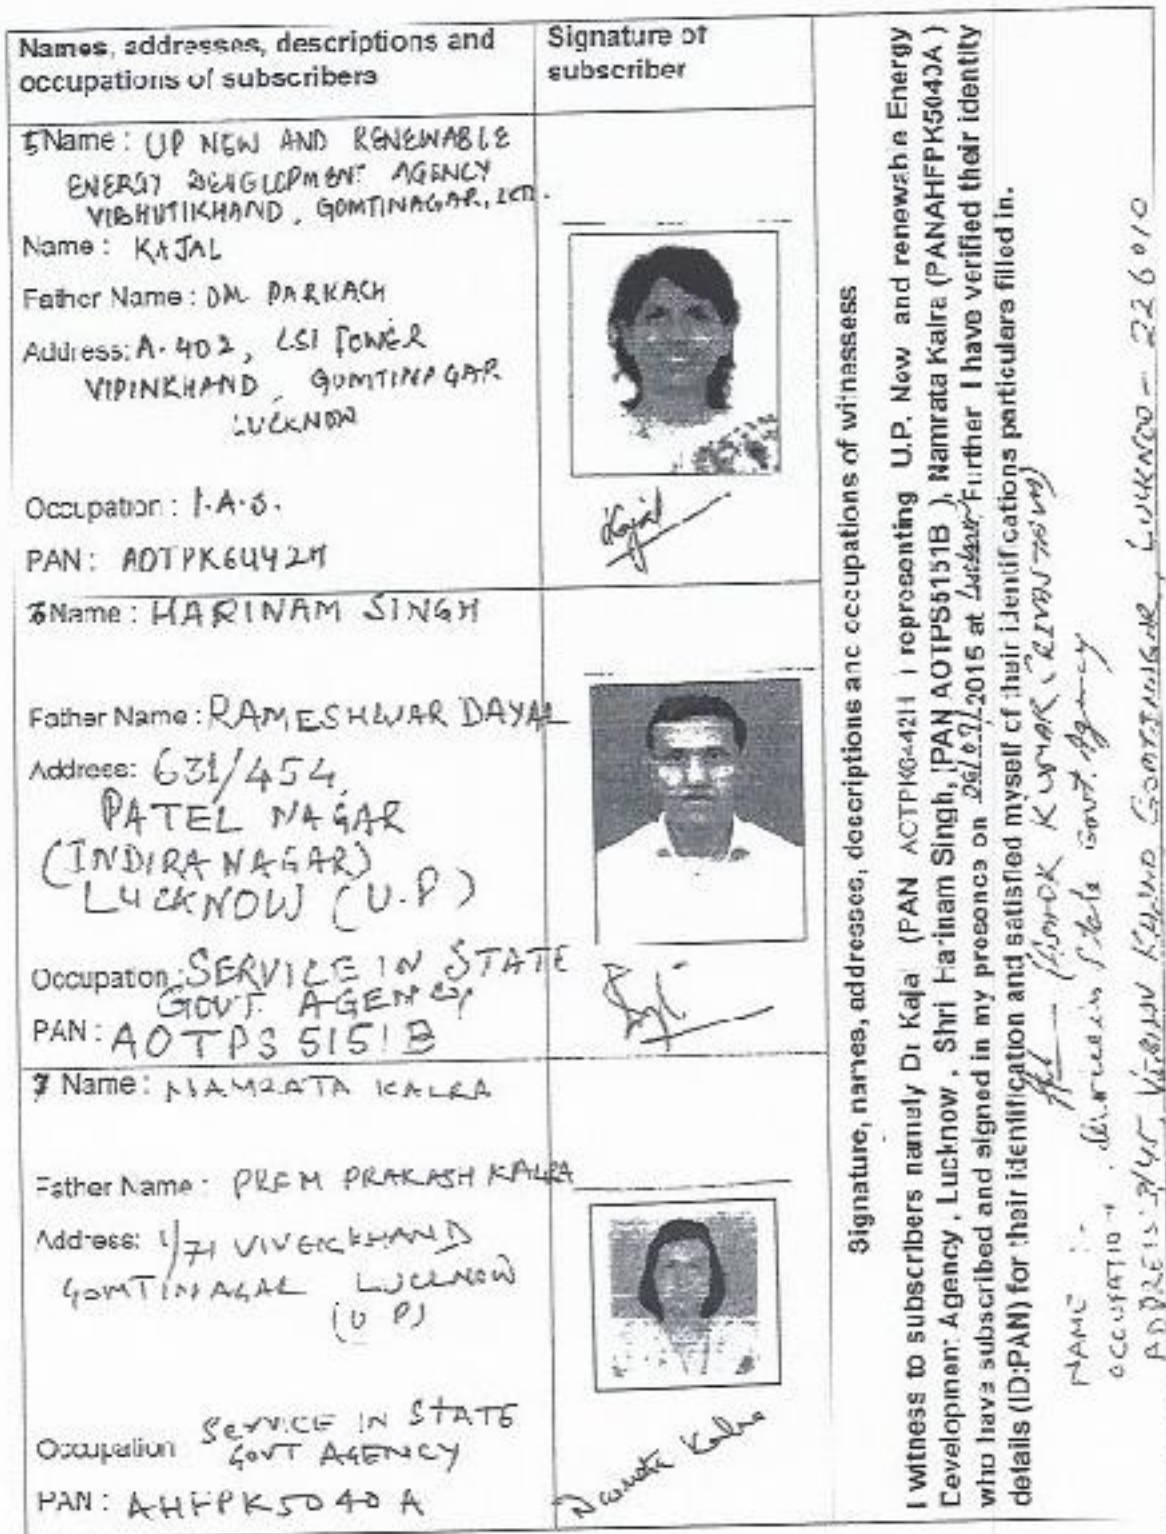 Names, addresses, descriptions and
occupations of subscribers
Signature of
subscriber
5 Name : UP NEW AND RENEWABLE
ENERGY DEVELOPMENT AGENCY
VIBHUTIKHAND, GOMTINAGAR,
Name : KAJAL
Father Name : OM PARKASH
Address: A-402, LSI TOWER
VIPINKHAND, GOMTINAGAR
LUCKNOW
Occupation : I.A.S.
PAN : AOTPK6442H
Kajal
6 Name : HARINAM SINGH
Father Name : RAMESHWAR DAYAL
Address: 631/454,
PATEL NAGAR
(INDIRA NAGAR)
LUCKNOW (U.P)
Occupation : SERVICE IN STATE
GOVT. AGENCY
PAN : AOTPS 5151 B
7 Name : NAMRATA KALRA
Father Name : PREM PRAKASH KALRA
Address: 1/71 VIVEKKHAND
GOMTINAGAR LUCKNOW
(U P)
Occupation SERVICE IN STATE
GOVT AGENCY
PAN : AHFPK5040 A
Namrata Kalra
Signature, names, addresses, descriptions and occupations of witnessess
I witness to subscribers namely Dr Kajal (PAN AOTPK6442H ) representing U.P. New and renewable Energy
Development Agency, Lucknow, Shri Harinam Singh, (PAN AOTPS5151B ), Namrata Kalra (PANAHFPK5040A )
who have subscribed and signed in my presence on 06/07/2015 at Lucknow. Further I have verified their identity
details (ID:PAN) for their identification and satisfied myself of their identifications particulars filled in.
NAME :- (ASHOK KUMAR SRIVASTAVA)
OCCUPATION : Service in State Govt. Agency
ADDRESS : 2/45, VIBHAV KHAND GOMTINAGAR, LUCKNOW - 226010